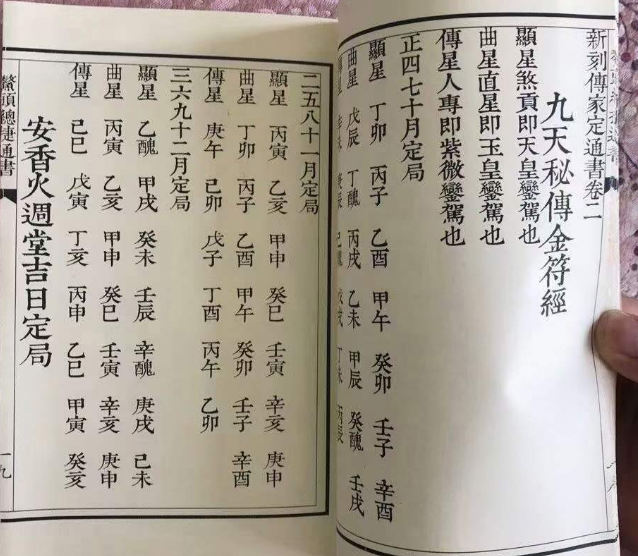 新刻傳家定通書卷二
九天秘傳金符經
顯星煞頁即天皇鑾駕也
曲星直星即玉皇鑾駕也
傳星人專即紫微鑾駕也
正四七十月定局
顯星 丁卯 丙子 乙酉 甲午 癸卯 壬子 辛酉
曲星 戊辰 丁醜 丙戌 乙未 甲辰 癸醜 壬戌
二五八十一月定局
顯星 丙寅 乙亥 甲申 癸巳 壬寅 辛亥 庚申
曲星 丁卯 丙子 乙酉 甲午 癸卯 壬子 辛酉
傳星 庚午 己卯 戊子 丁酉 丙午 乙卯
三六九十二月定局
顯星 乙醜 甲戌 癸未 壬辰 辛醜 庚戌 己未
曲星 丙寅 乙亥 甲申 癸巳 壬寅 辛亥 庚申
傳星 己巳 戊寅 丁亥 丙申 乙巳 甲寅 癸亥
安香火週堂吉日定局
鰲頭總捷通書
一九